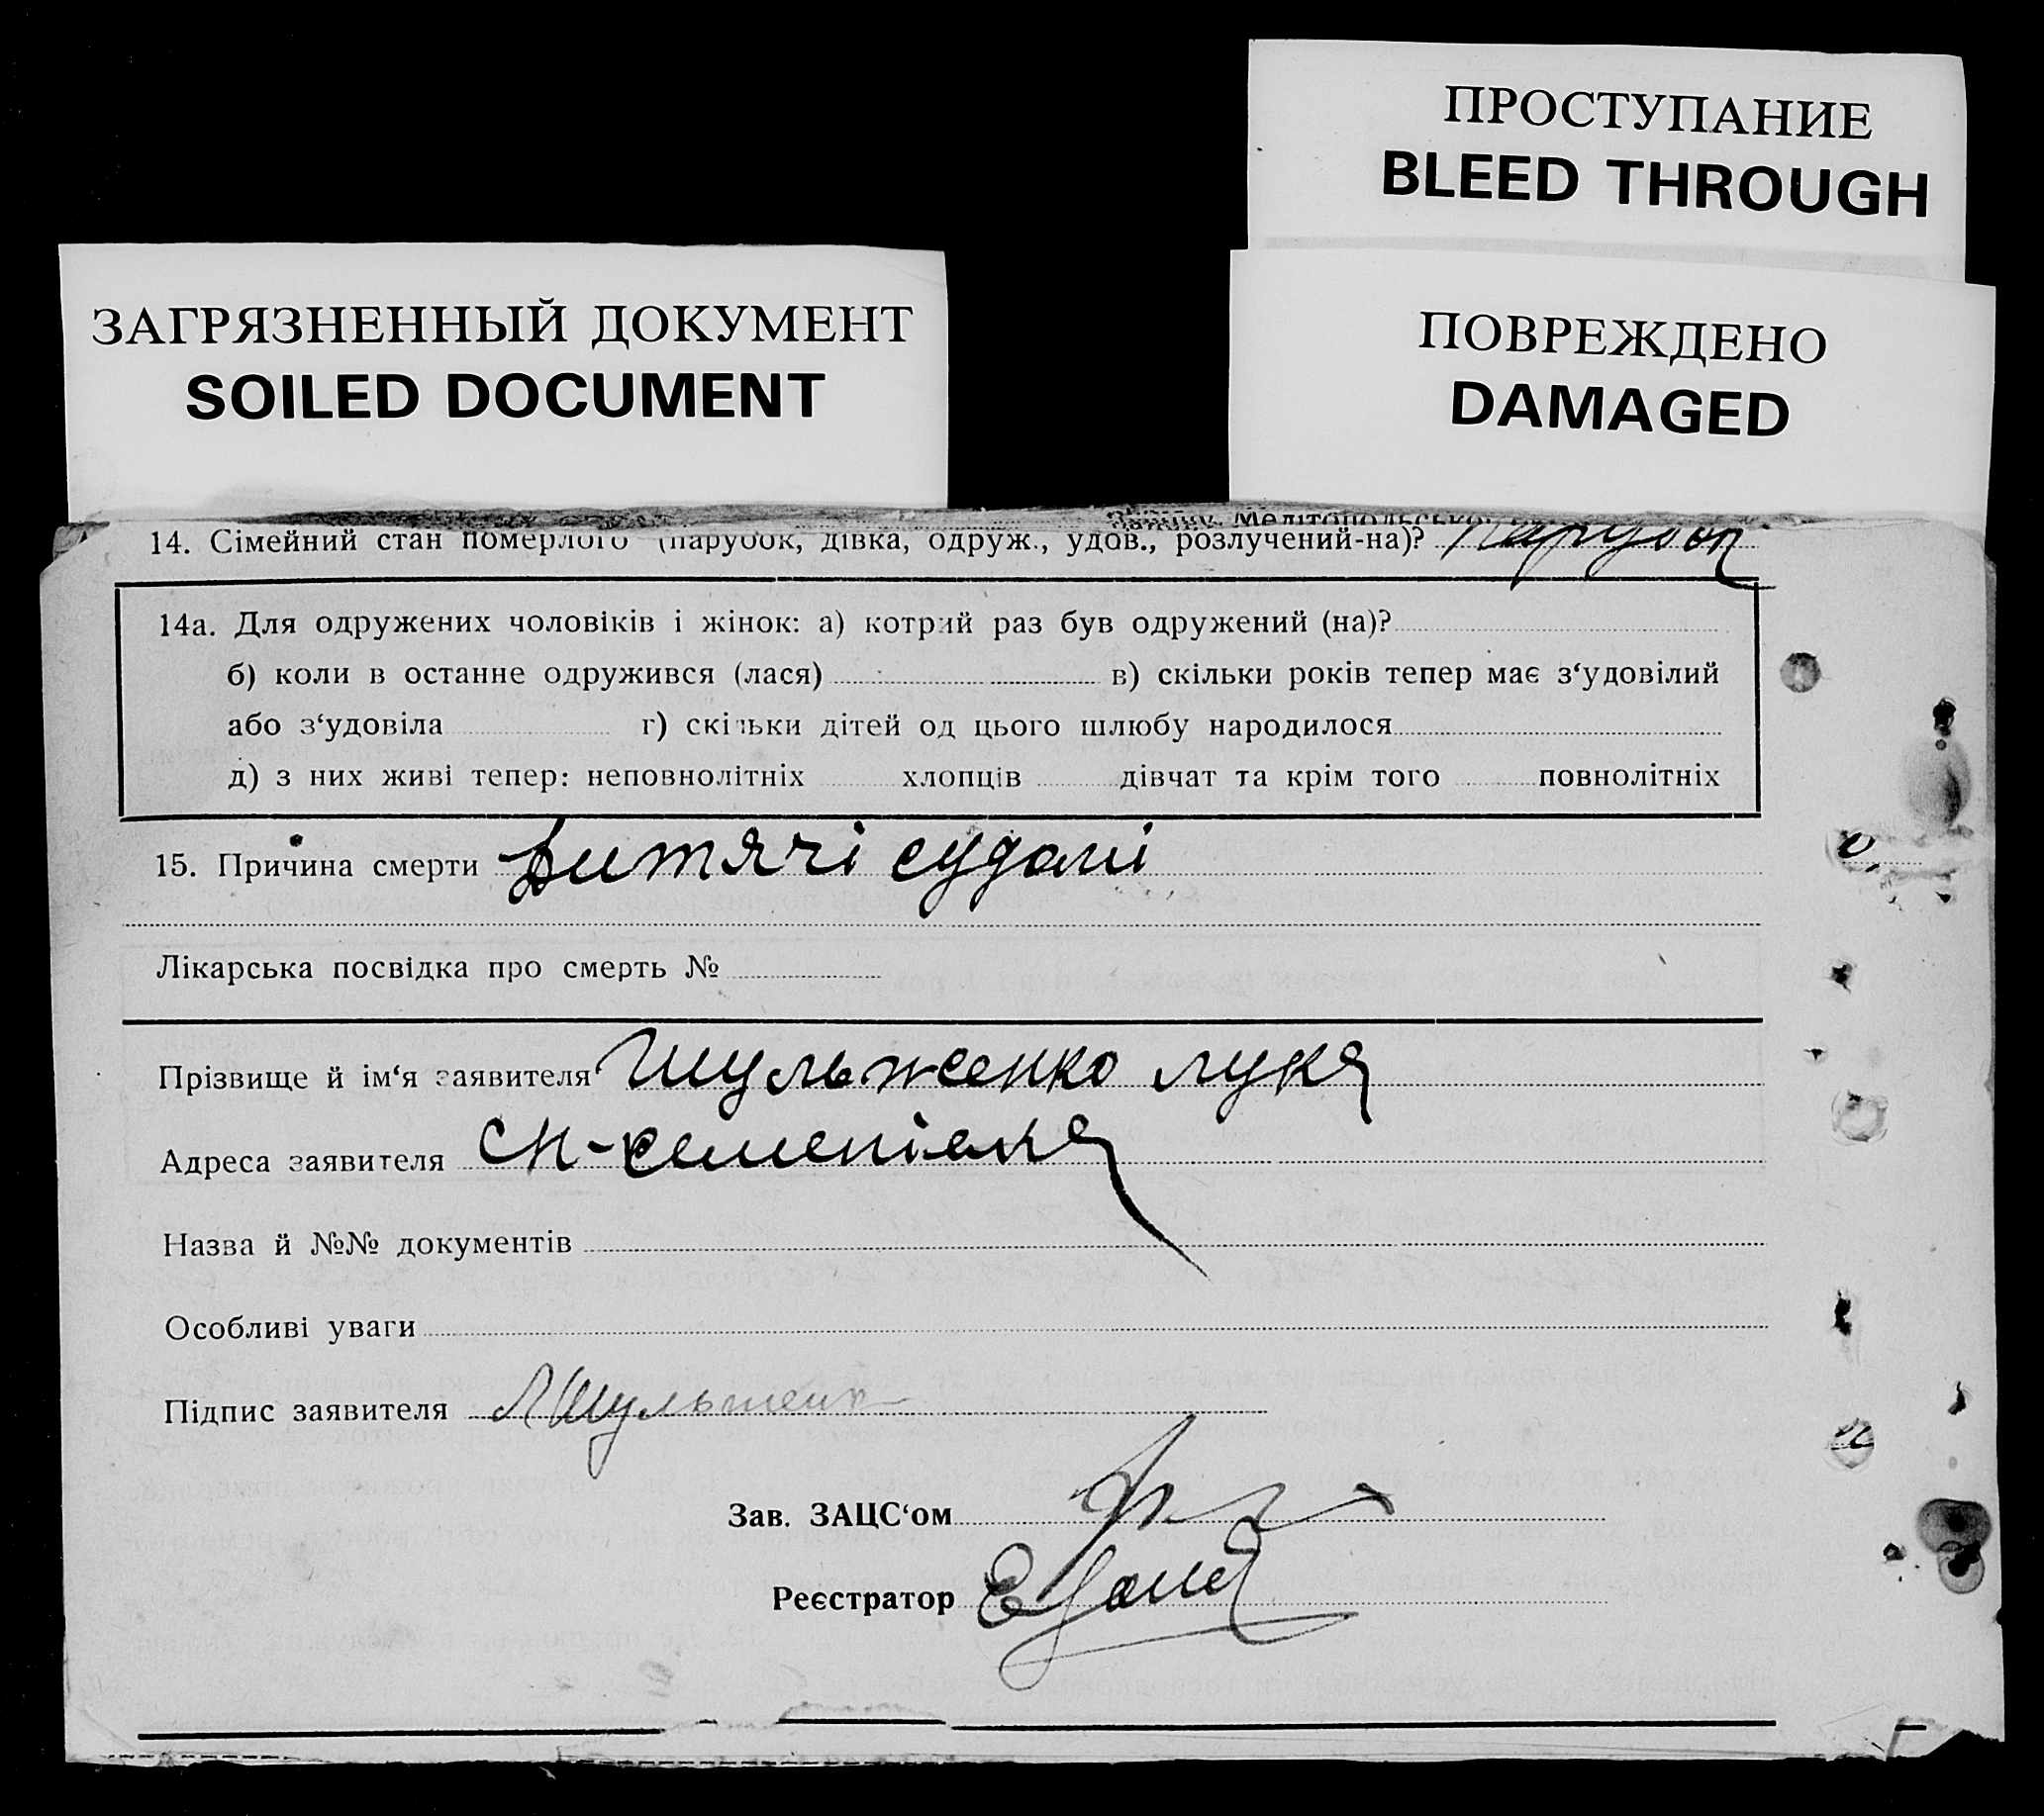 ПРОСТУПАНИЕ
BLEED THROUGH
ЗАГРЯЗНЕННЫЙ ДОКУМЕНТ
SOILED DOCUMENT
ПОВРЕЖДЕНО
DAMAGED
Мелітопольсько
14. Сімейний стан померлого (парубок, дівка, одруж., удов., розлучений-на)? парубок
14а. Для одружених чоловіків і жінок: а) котрий раз був одружений (на)?
б) коли в останнє одружився (лася) в) скільки років тепер має з‘удовілий
або з‘удовіла г) скільки дітей од цього шлюбу народилося
д) з них живі тепер: неповнолітніх хлопців дівчат та крім того повнолітніх
15. Причина смерти Дитячі судомі
Лікарська посвідка про смерть №
Прізвище й ім‘я заявителя Шульженко лука
Адреса заявителя
Назва й №№ документів
Особливі уваги
Підпис заявителя ЛШульженк
Зав. ЗАЦС‘ом
Реєстратор